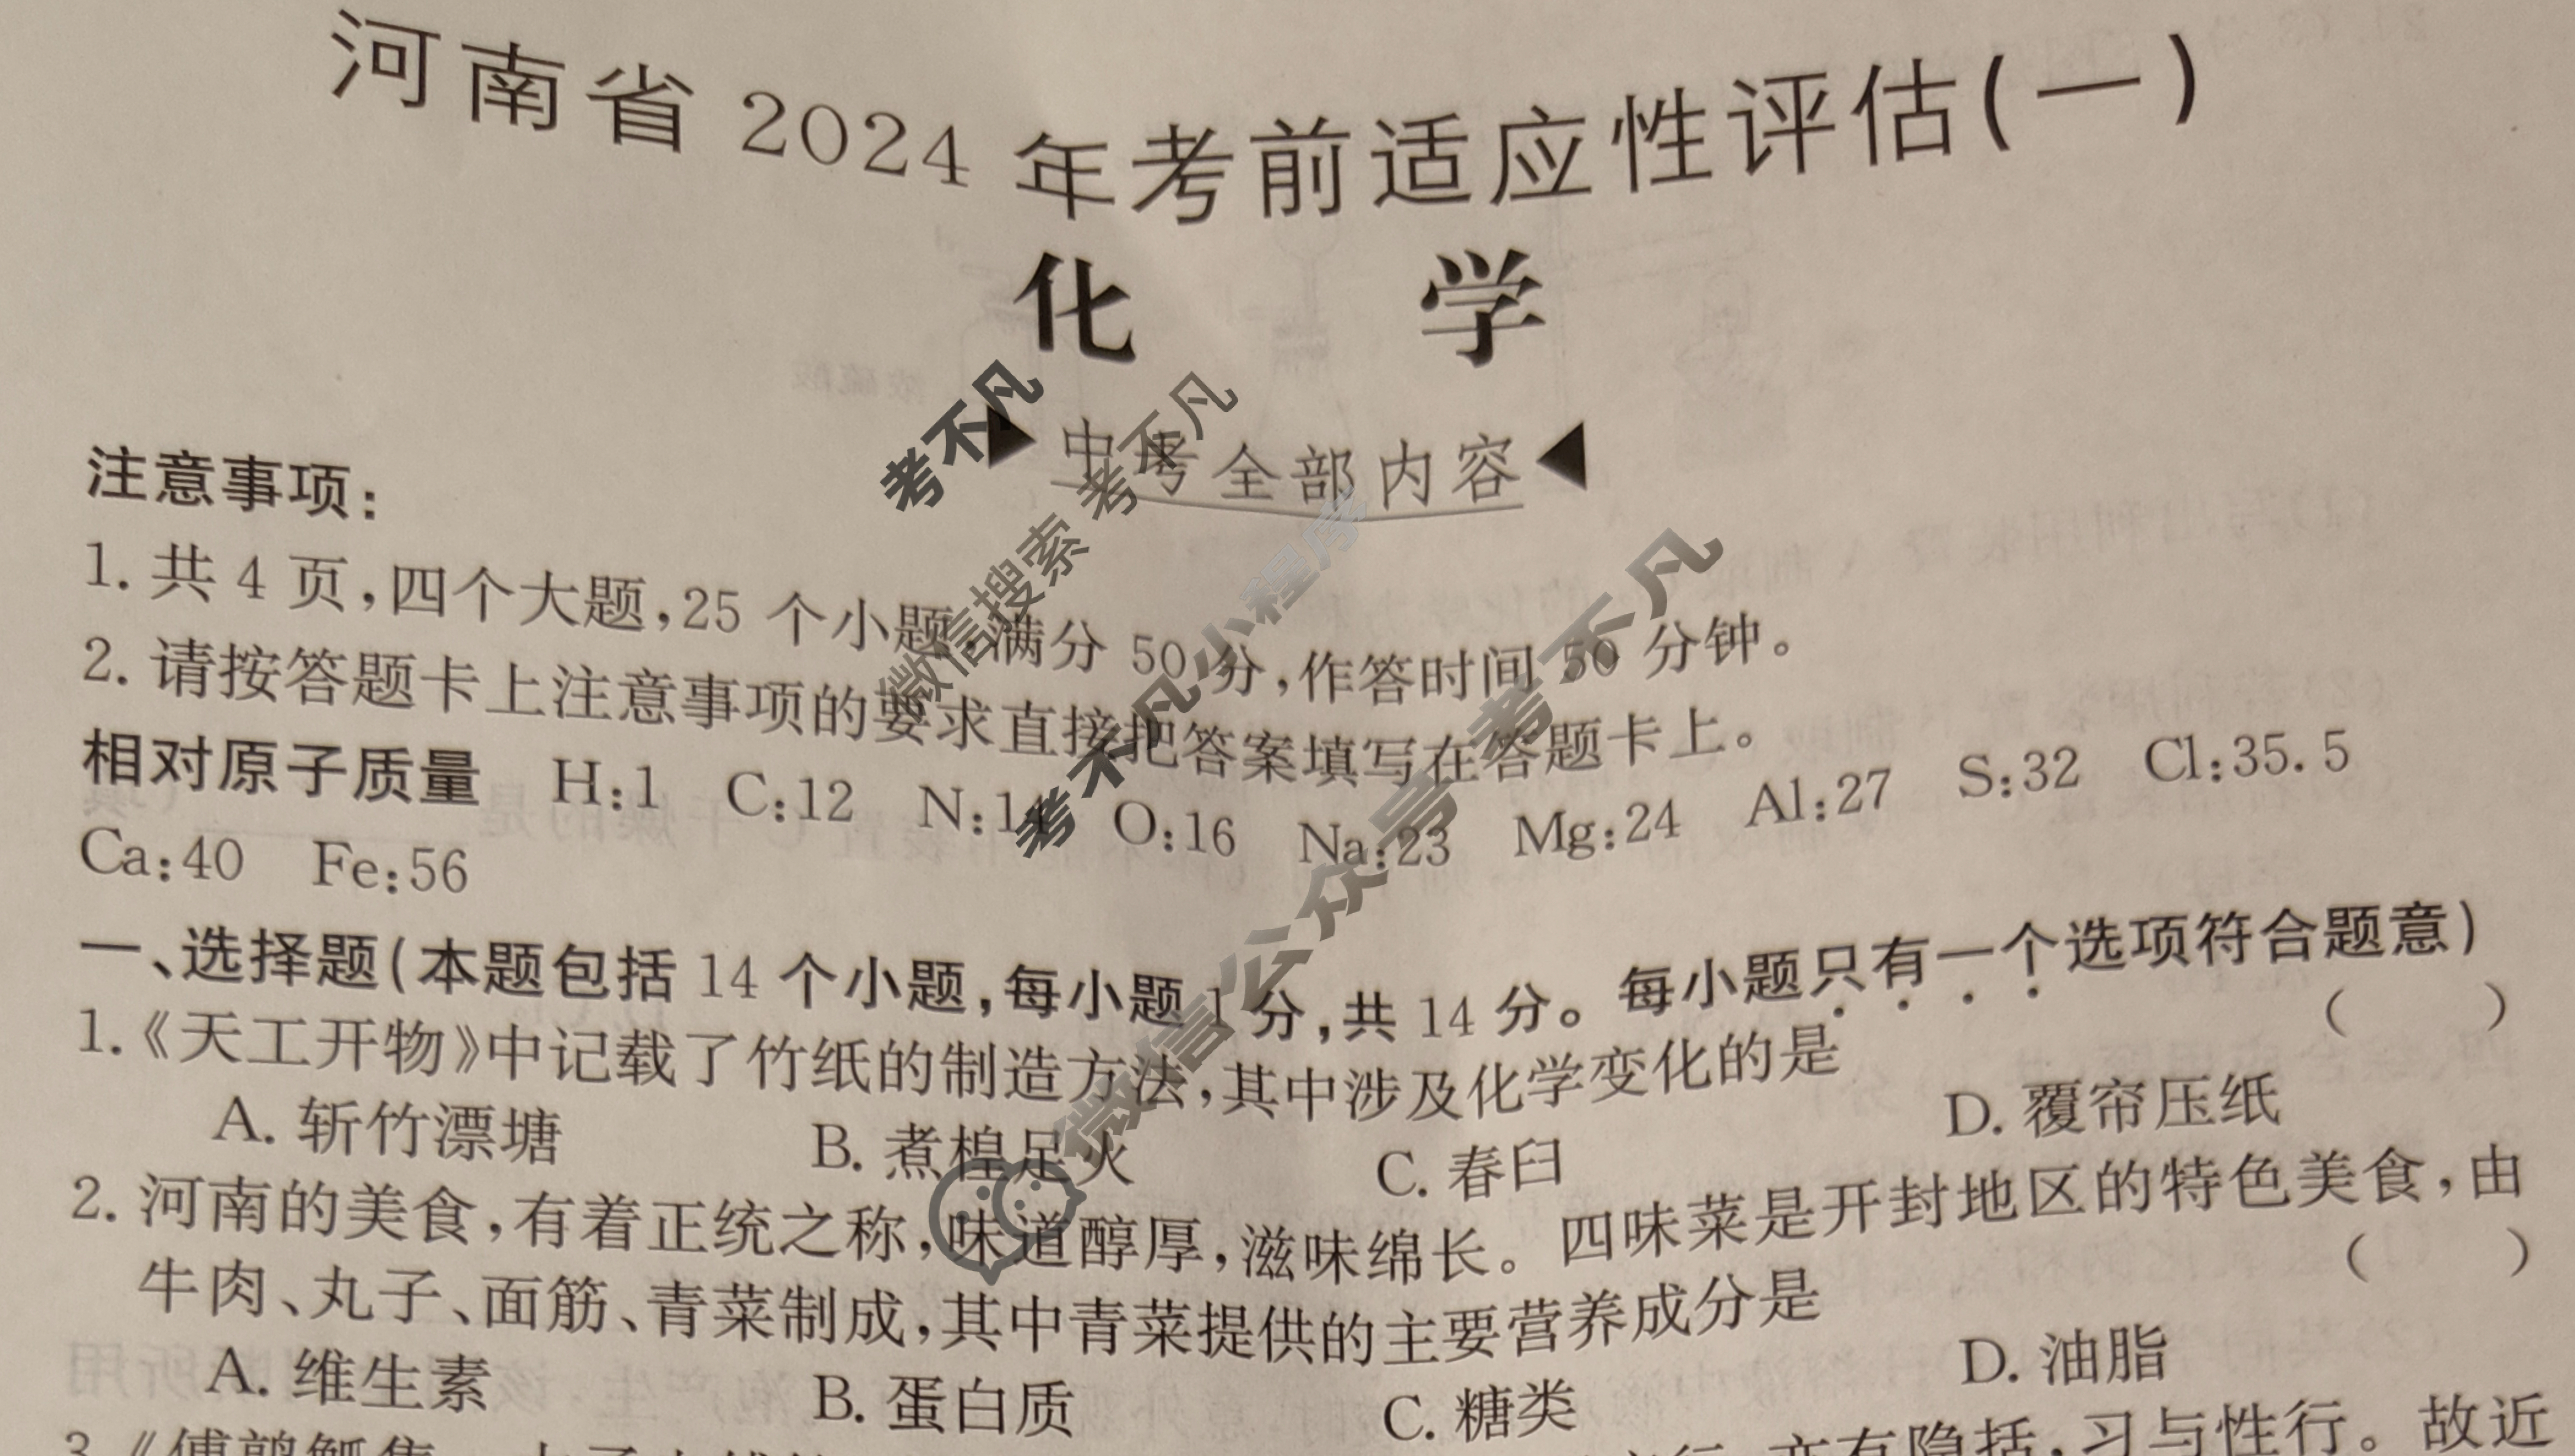 河南省 2024 年考前适应性评估(一)
化 学
▶ 中考全部内容 ◀
注意事项:
1. 共 4 页,四个大题,25 个小题,满分 50 分,作答时间 50 分钟。
2. 请按答题卡上注意事项的要求直接把答案填写在答题卡上。
相对原子质量 H:1 C:12 N:14 O:16 Na:23 Mg:24 Al:27 S:32 Cl:35.5
Ca:40 Fe:56
一、选择题(本题包括 14 个小题,每小题 1 分,共 14 分。每小题只有一个选项符合题意)
1.《天工开物》中记载了竹纸的制造方法,其中涉及化学变化的是 ( )
A. 斩竹漂塘 B. 煮楻足火 C. 舂臼 D. 覆帘压纸
2. 河南的美食,有着正统之称,味道醇厚,滋味绵长。四味菜是开封地区的特色美食,由
牛肉、丸子、面筋、青菜制成,其中青菜提供的主要营养成分是 ( )
A. 维生素 B. 蛋白质 C. 糖类 D. 油脂
亦有隐括,习与性行。故近
考不凡
微信搜索 考不凡
考不凡小程序
微信公众号 考不凡